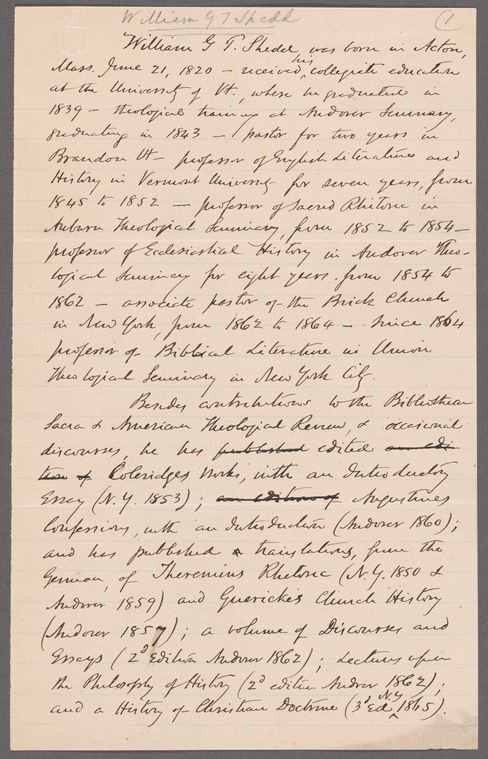 William G T Shedd
1
William G T. Shedd, was born in Acton,
Mass. June 21, 1820 – received his collegiate education
at the University of Vt., where he graduated in
1839 – theological training at Andover Seminary,
graduating in 1843 – pastor for two years in
Brandon Vt – professor of English Literature and
History in Vermont University for seven years, from
1845 to 1852 – professor of Sacred Rhetoric in
Auburn Theological Seminary, from 1852 to 1854 –
professor of Ecclesiastical History in Andover Theo-
logical Seminary for eight years from 1854 to
1862 – associate pastor of the Brick Church
in New York from 1862 to 1864 – since 1864
professor of Biblical Literature in Union
Theological Seminary in New York City.
Besides contributions to the Bibliotheca
Sacra & American Theological Review, & occasional
discourses, he has published edited an edi
tion of Coleridges Works, with an Introductory
Essay (N.Y. 1853); an edition of Augustines
Confessions, with an Introduction (Andover 1860);
and has published translations, from the
German, of Theremins Rhetoric (N.Y. 1850 &
Andover 1859) and Guerickes Church History
(Andover 1857); a volume of Discourses and
Essays (2d Edition Andover 1862); Lectures upon
the Philosophy of History (2d edition Andover 1862);
and a History of Christian Doctrine (3d Ed. N.Y. 1865).